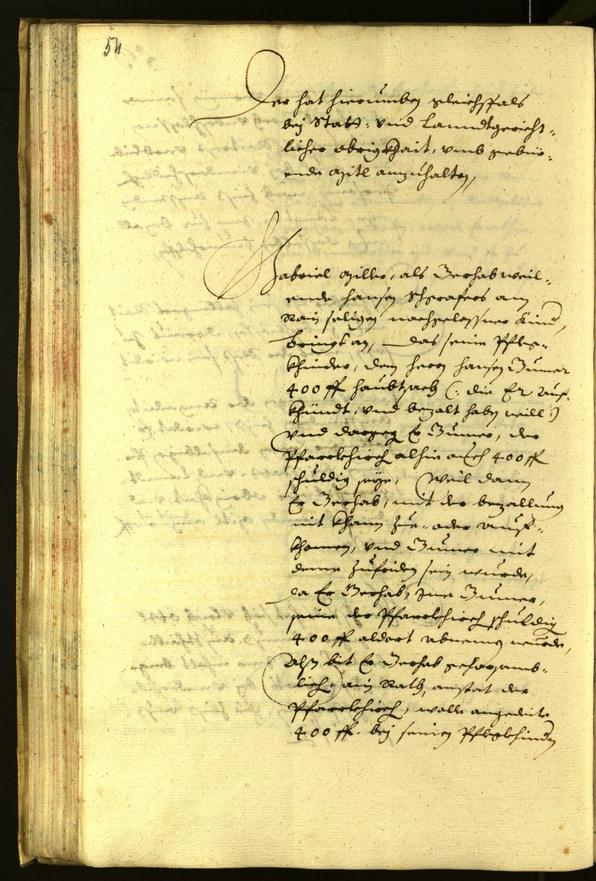 54
Der hat hierumben gleichffals
bej Statt: vnd Lanndtgericht-
licher obrigkhait, vmb gebür-
ende mitl anzuhalten,
Gabriel Miller, als Gerhab weil-
ende Hansen Schgrafers am
Rain seligen nachgelassner Kind,
bringt an, das seine Pfleg-
khinder, dem herrn Hansen Zimer
400 ff haubtsach (: die Er auf-
khündt, vnd bezalt haben will :)
vnd dargeg Er Zimer, der
Pfarrkhirch alhie auch 400 ff
schuldig seye, Weil dann
Er Gerhab, mit der bezallung
nit khann zue- oder auf-
khomen, vnd Zimer mit
deme zufriden sein wurde,
da Er Gerhab, Ime Zimer,
seine der Pfarrkhirch schuldig
400 ff aldort abnemen wurde,
Alss bit Er Gerhab gehorsamb-
lich, ain Rath, anstat der
Pfarrkhirch, wolle angedeite
400 ff. bej seinen Pflegkhinden